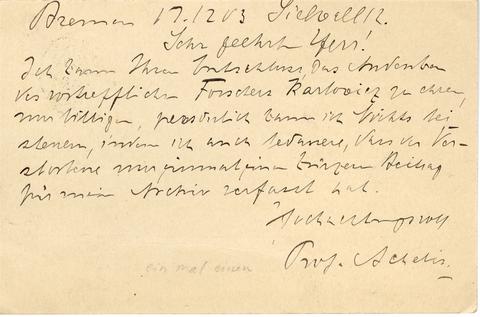 Bremen 17.12 03 Sielwall 12.
Sehr geehrter Herr!
Ich kann Ihren Entschluss, das Andenken
des vortrefflichen Forschers Karlowicz zu ehren,
nur billigen, persönlich kann ich Nichts bei
steuern, indem ich auch bedauere, dass der Ver-
storbene nur einmal einen kurzen Beitrag
für mein Archiv verfasst hat.
Hochachtungsvoll
Prof. Achelis.
ein mal einen